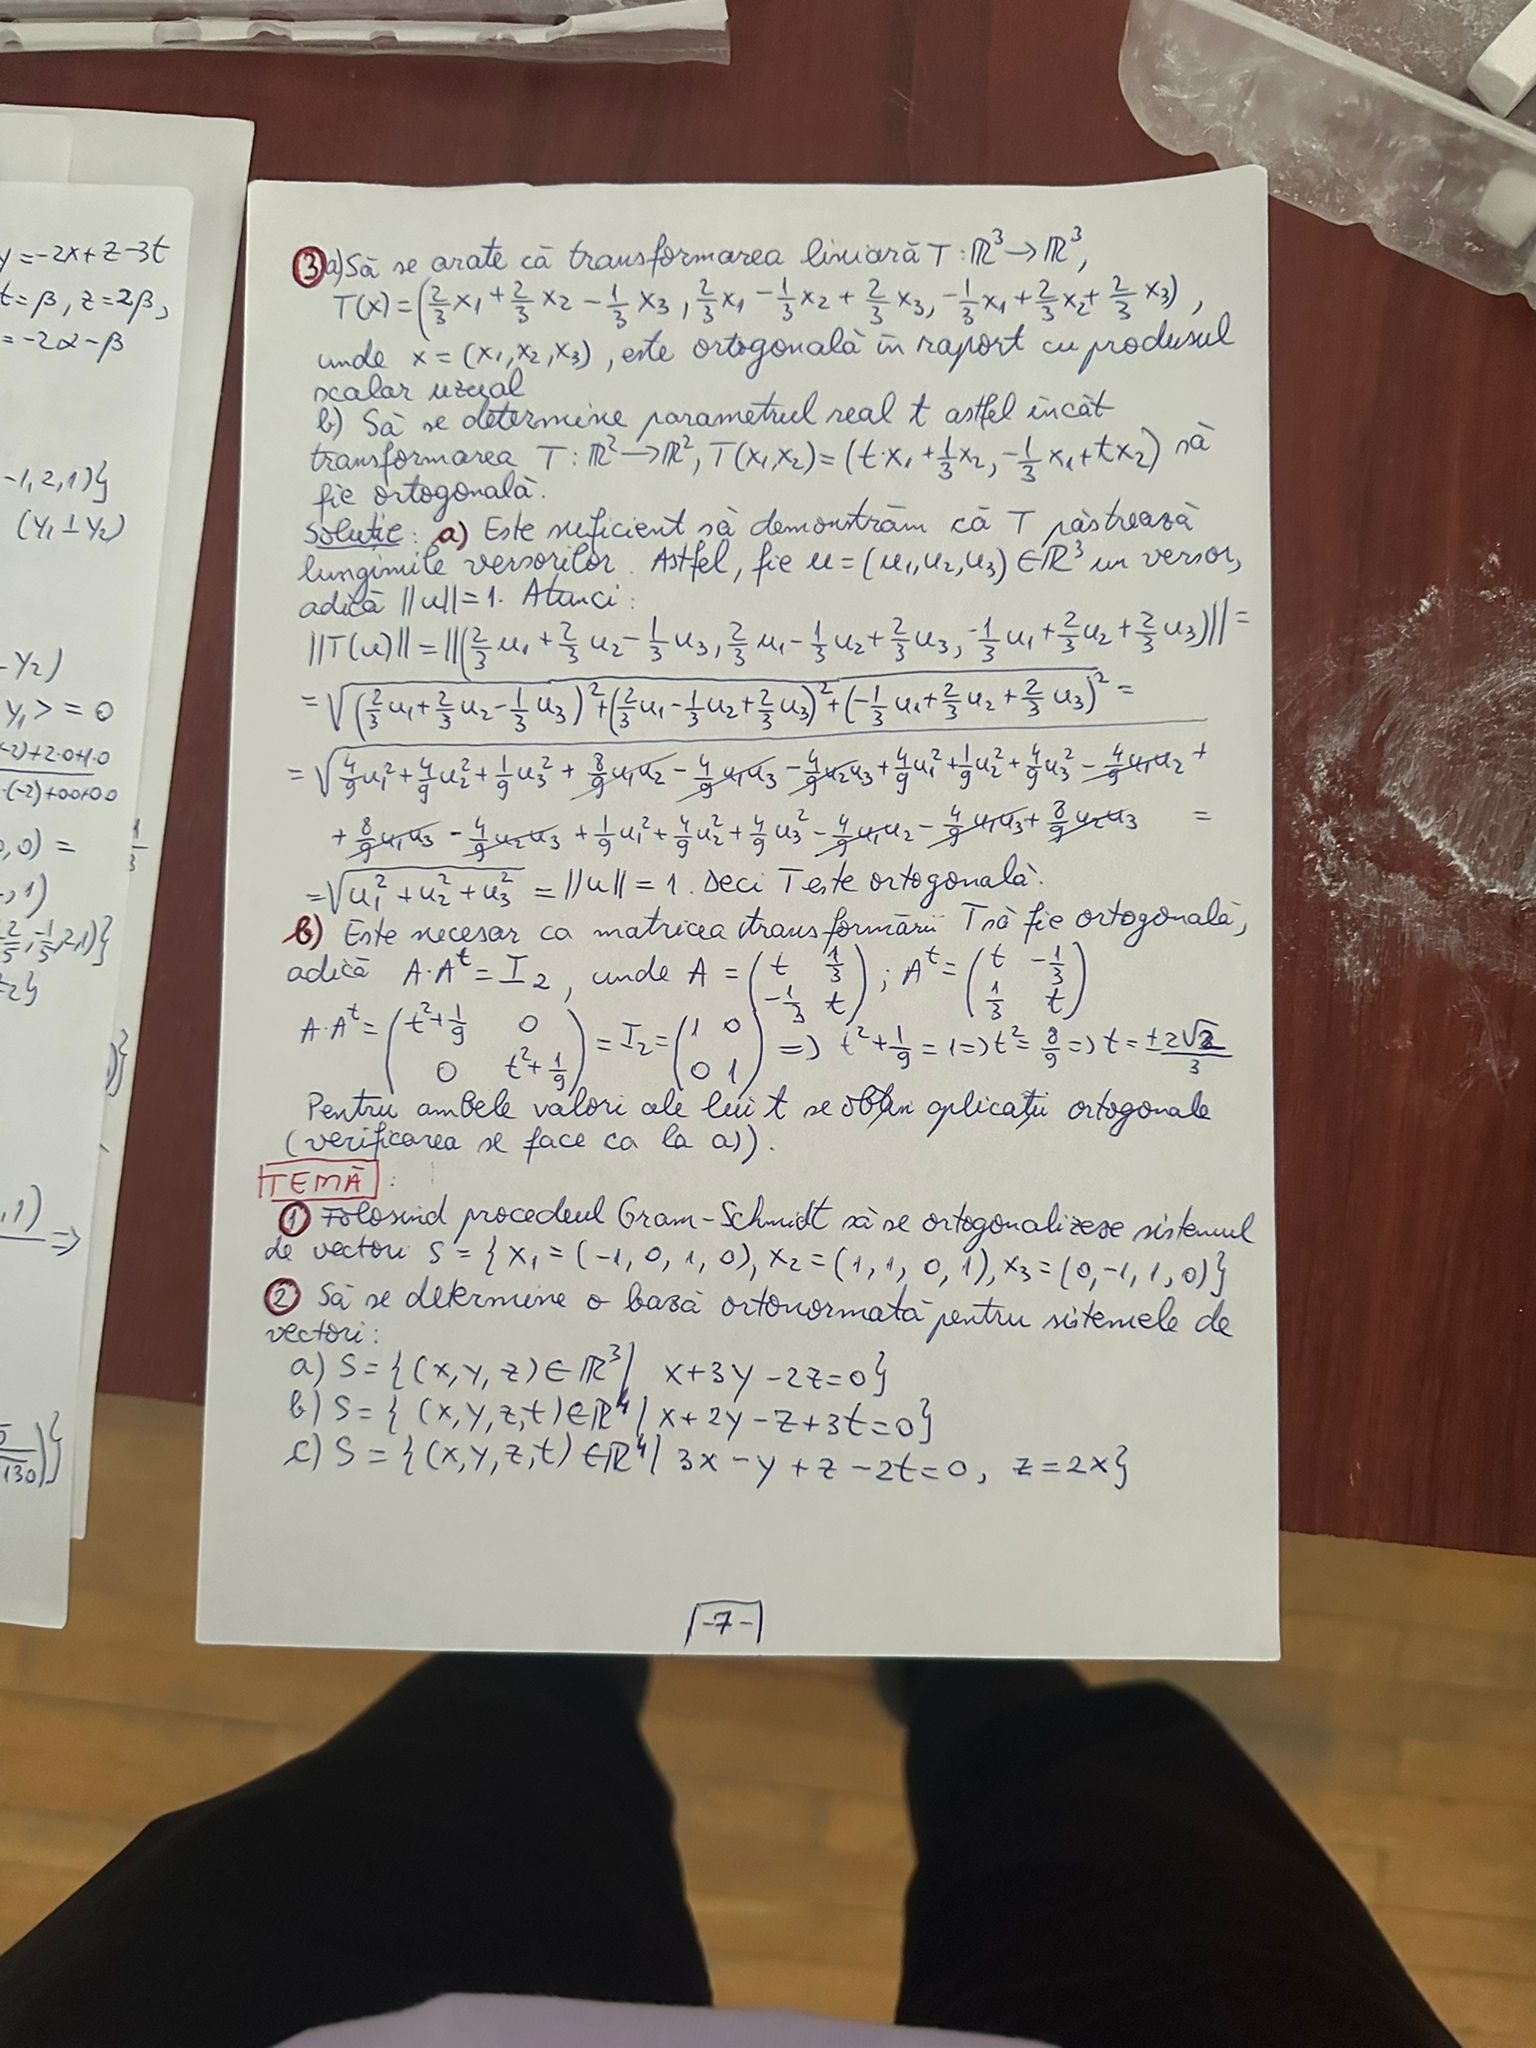 y = -2x + z - 3t
t = β, z = 2β,
= -2α - β
-1, 2, 1)}
(y₁ ⊥ y₂)
- y₂)
y₁> = 0
-2)+2·0+1·0
·(-2)+0·0+0·0
0, 0) =
1/3
, 1)
2/5, -1/5, 2, 1)}
, 1) ⟹
③ a) Să se arate că transformarea liniară T : ℝ³ → ℝ³,
T(x) = (2/3 x₁ + 2/3 x₂ - 1/3 x₃, 2/3 x₁ - 1/3 x₂ + 2/3 x₃, -1/3 x₁ + 2/3 x₂ + 2/3 x₃),
unde x = (x₁, x₂, x₃), este ortogonală în raport cu produsul
scalar uzual
b) Să se determine parametrul real t astfel încât
transformarea T : ℝ² → ℝ², T(x₁, x₂) = (t·x₁ + 1/3 x₂, -1/3 x₁ + t x₂) să
fie ortogonală.
Soluție: a) Este suficient să demonstrăm că T păstrează
lungimile versorilor. Astfel, fie u = (u₁, u₂, u₃) ∈ ℝ³ un versor,
adică ||u|| = 1. Atunci:
||T(u)|| = ||(2/3 u₁ + 2/3 u₂ - 1/3 u₃, 2/3 u₁ - 1/3 u₂ + 2/3 u₃, -1/3 u₁ + 2/3 u₂ + 2/3 u₃)|| =
= √((2/3 u₁ + 2/3 u₂ - 1/3 u₃)² + (2/3 u₁ - 1/3 u₂ + 2/3 u₃)² + (-1/3 u₁ + 2/3 u₂ + 2/3 u₃)²) =
= √(4/9 u₁² + 4/9 u₂² + 1/9 u₃² + 8/9 u₁u₂ - 4/9 u₁u₃ - 4/9 u₂u₃ + 4/9 u₁² + 1/9 u₂² + 4/9 u₃² - 4/9 u₁u₂ +
+ 8/9 u₁u₃ - 4/9 u₂u₃ + 1/9 u₁² + 4/9 u₂² + 4/9 u₃² - 4/9 u₁u₂ - 4/9 u₁u₃ + 8/9 u₂u₃ =
= √(u₁² + u₂² + u₃²) = ||u|| = 1. Deci T este ortogonală.
b) Este necesar ca matricea transformării T să fie ortogonală,
adică A·Aᵗ = I₂, unde A = (t 1/3; -1/3 t); Aᵗ = (t -1/3; 1/3 t)
A·Aᵗ = (t² + 1/9 0; 0 t² + 1/9) = I₂ = (1 0; 0 1) ⟹ t² + 1/9 = 1 ⟹ t² = 8/9 ⟹ t = ±2√2/3
Pentru ambele valori ale lui t se obțin aplicații ortogonale
(verificarea se face ca la a)).
TEMĂ:
① Folosind procedeul Gram-Schmidt să se ortogonalizeze sistemul
de vectori S = {x₁ = (-1, 0, 1, 0), x₂ = (1, 1, 0, 1), x₃ = (0, -1, 1, 0)}
② Să se determine o bază ortonormată pentru sistemele de
vectori:
a) S = {(x, y, z) ∈ ℝ³ | x + 3y - 2z = 0}
b) S = {(x, y, z, t) ∈ ℝ⁴ | x + 2y - z + 3t = 0}
c) S = {(x, y, z, t) ∈ ℝ⁴ | 3x - y + z - 2t = 0, z = 2x}
-7-